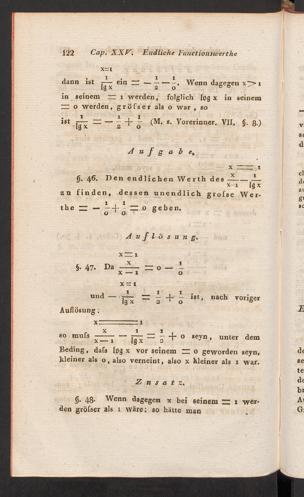 122 Cap. XXV. Endliche Functionswerthe
x=1
dann ist 1/lg x ein = − 1/2 − 1/0. Wenn dagegen x > 1
in seinem = 1 werden, folglich lg x in seinem
= 0 werden, gröſser als 0 war, so
ist 1/lg x = − 1/2 + 1/0 (M. s. Vorerinner. VII. §. 8.)
Aufgabe.
x = 1
§. 46. Den endlichen Werth des x/x−1 − 1/lg x
zu finden, dessen unendlich groſse Wer-
the = − 1/0 + 1/0 = 0 geben.
Auflösung.
x=1
§. 47. Da x/x−1 = 0 − 1/0
x=1
und − 1/lg x = 1/2 + 1/0 ist, nach voriger
Auflösung;
x = 1
so muſs x/x−1 − 1/lg x = 1/2 + 0 seyn, unter dem
Beding, daſs lg x vor seinem = 0 geworden seyn,
kleiner als 0, also verneint, also x kleiner als 1 war.
Zusatz.
§. 48. Wenn dagegen x bei seinem = 1 wer-
den gröſser als 1 wäre; so hätte man